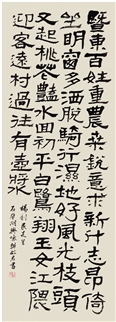 暨東百姓重農桑銳意求新斗志昂倚
坐明窗多洒脫騎行濕地好風光枝頭
又起桃花艷水面初平白鷺翔王女江隈
迎客遠村過往有壺漿